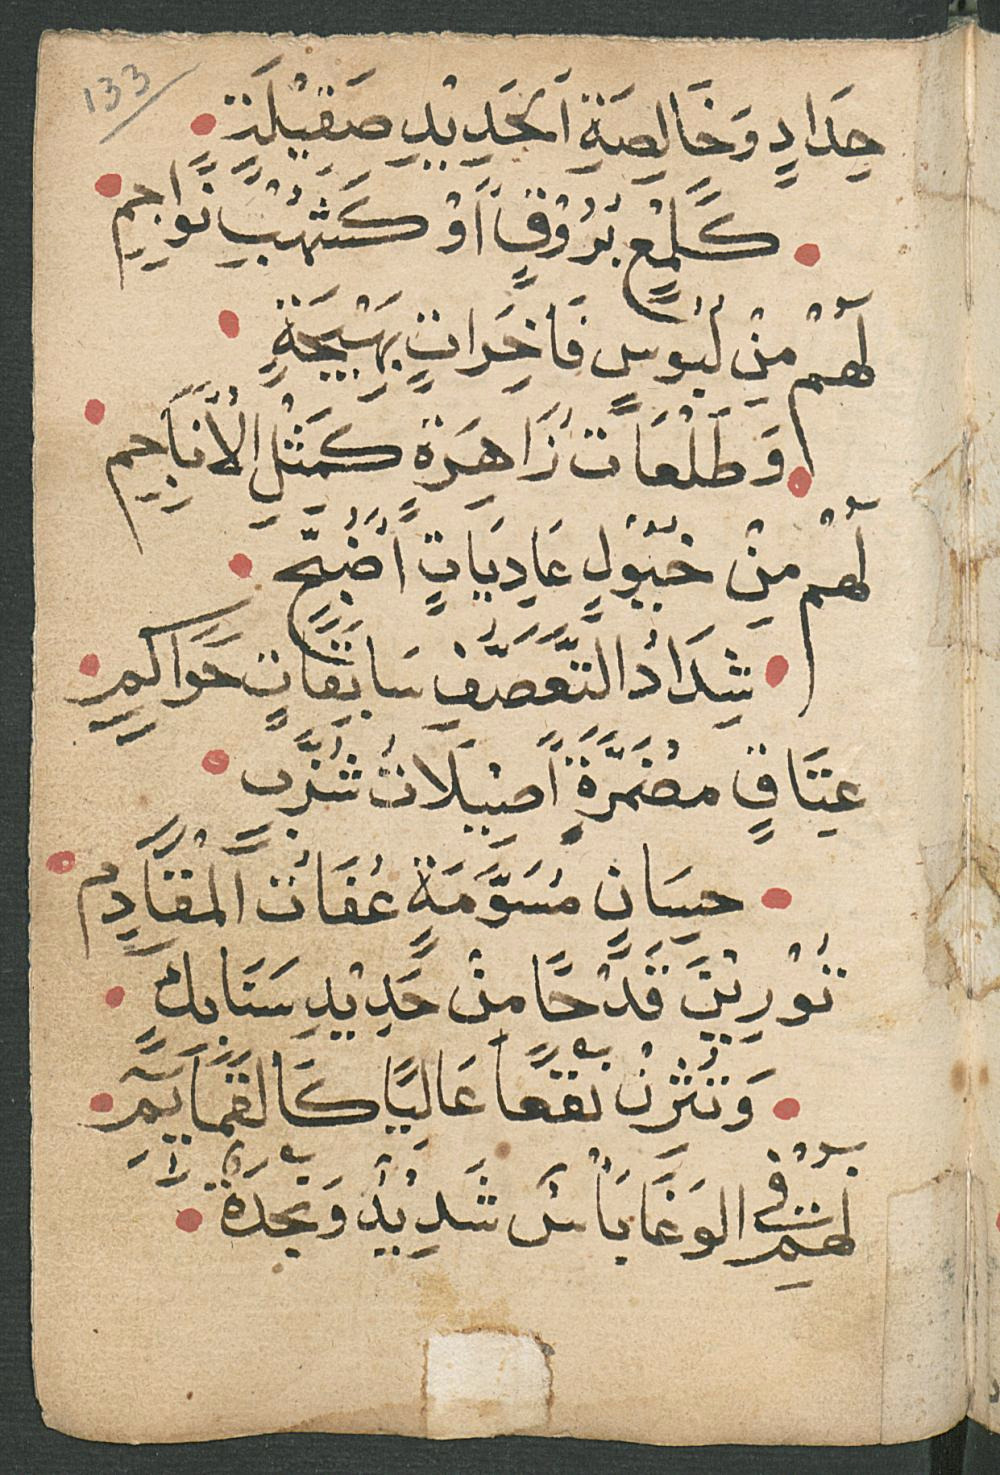 133
حِدَادٍ وَخَالِصَةِ اَلحَدِيْدِ صَقِيْلَةٍ
كَلَمْعِ بُرُوْقٍ اَوْ كَشُهْبٍ نَوَاجِمِ
لَهُمْ مِنْ لَبُوسٍ فَاخِرَاتٍ بَهِيْجَةٍ
وَطَلْعَاتُ زَاهِرَةٍ كَمِثْلِ الْاَنَاجِمِ
لَهُمْ مِنْ خُيُوْلٍ عَادِيَاتٍ اَضْبُحٍ
شِدَادُ التَّعَصَّفِ سَابِقَاتٍ حَوَاكِمِ
عِتَاقٍ مُضَمَّرَةٍ اَصِيْلَاتُ شُزَّبٍ
حِسَانٍ مُسَوَّمَةٍ عُفَاتُ اَلْمَقَادِمِ
تُوْرِيْنَ قَدْحًا مِنْ حَدِيْدِ سَنَابِكٍ
وَتُثْرنَ نَقْعًا عَالِيًا كَالقَمَايَمِ
لَهُمْ فِى الوَغَا بَاْسٌ شَدِيْدٌ وَنَجْدَةٌ